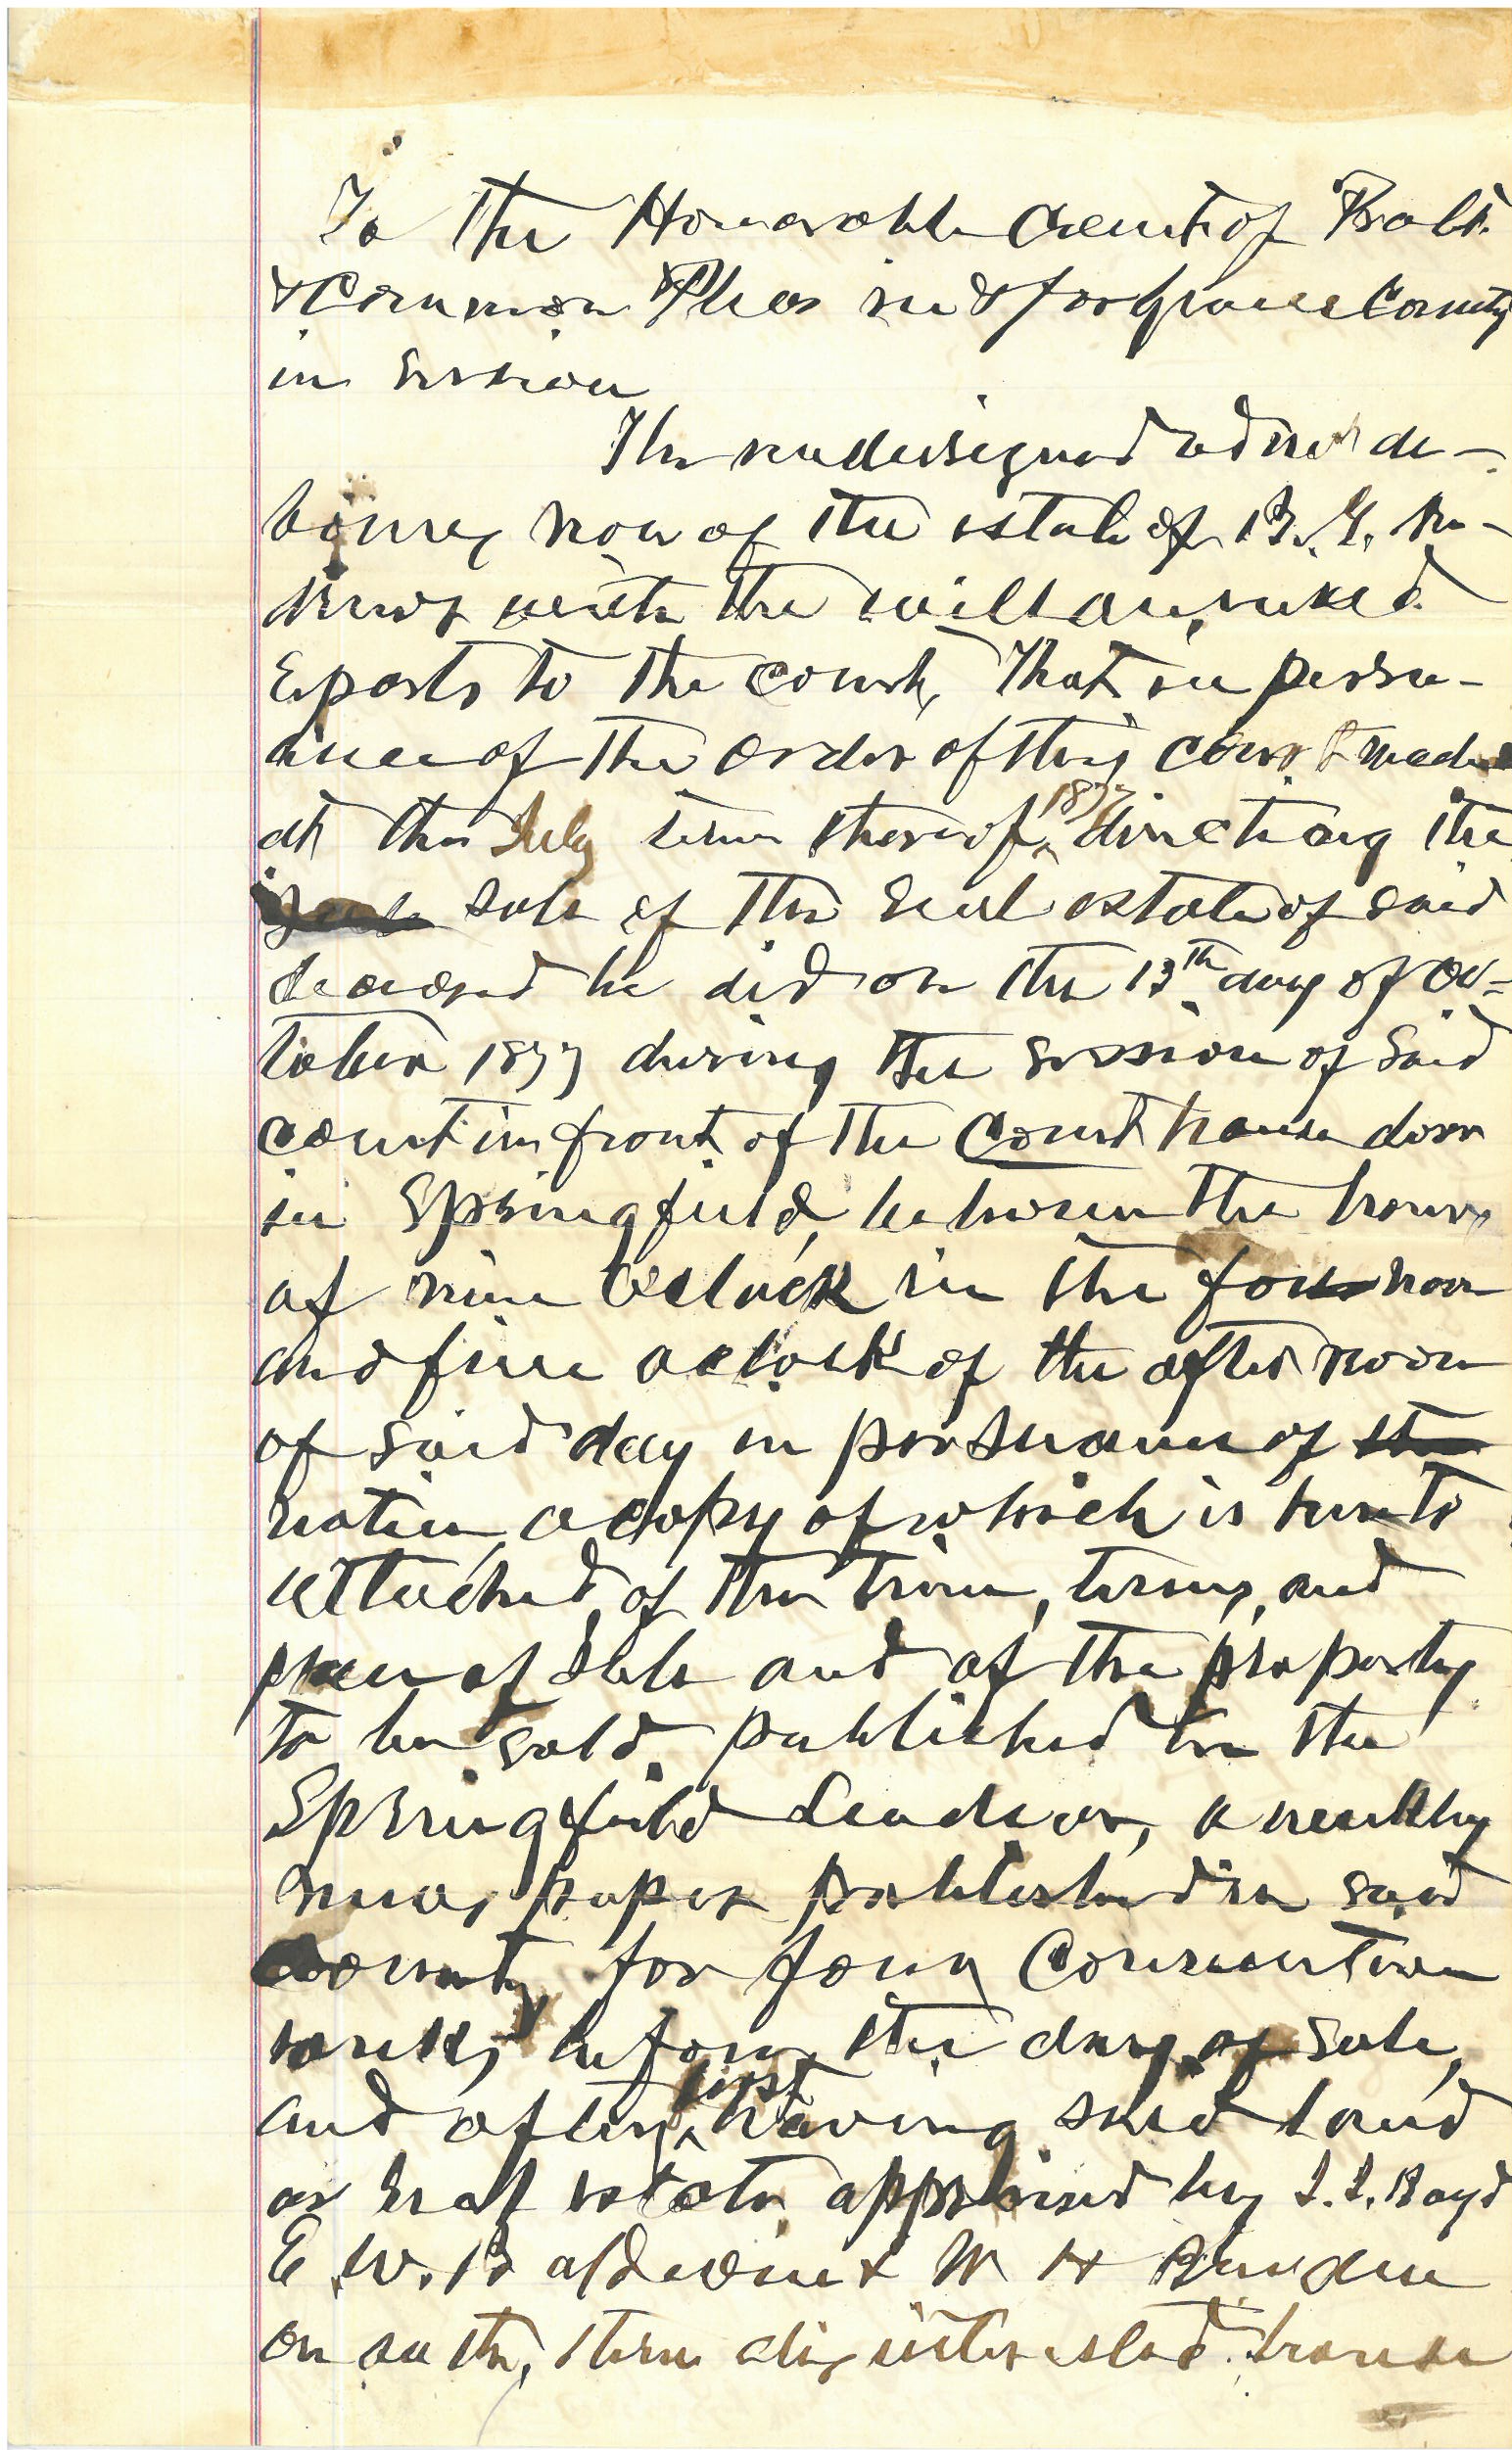 To the Honorable Court of Prob't.
& Common Pleas in & for Greene County
in Session
The undersigned adm'r de-
bonis, non of the estate of B. G. An-
drews with the will annexed
reports to the court, That in persu-
ance of the order of this court made
at the July term thereof, 1877 directing the
sale of the real estate of said
deceased he did on the 13th day of Oc=
tober 1877 during the session of said
court in front of the Court house door
in Springfield, between the hours
of nine O'clock in the fore noon
and five oclock of the after noon
of said day in persuance of the
notice, a copy of which is hereto
attached, of the time, terms, and
place of Sale and of the property
to be sold. published in the
Springfield Leader, a weekly
news paper published in said
county for four Consecutive
weeks, before the day of sale,
and after, first having said land
or real estate appraised by J. J. Boyd
E. W. Baldwin & W H
on oath, three disinterested house